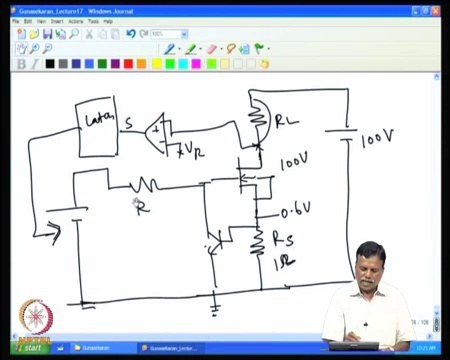 Gunasekaran_Lecture17 - Windows Journal
File Edit View Insert Actions Tools Help
100%
B I
Latch
S
+
VR
RL
100V
100V
R
0.6V
RS
1Ω
start
Gunasekaran
Gunasekaran_Lectu...